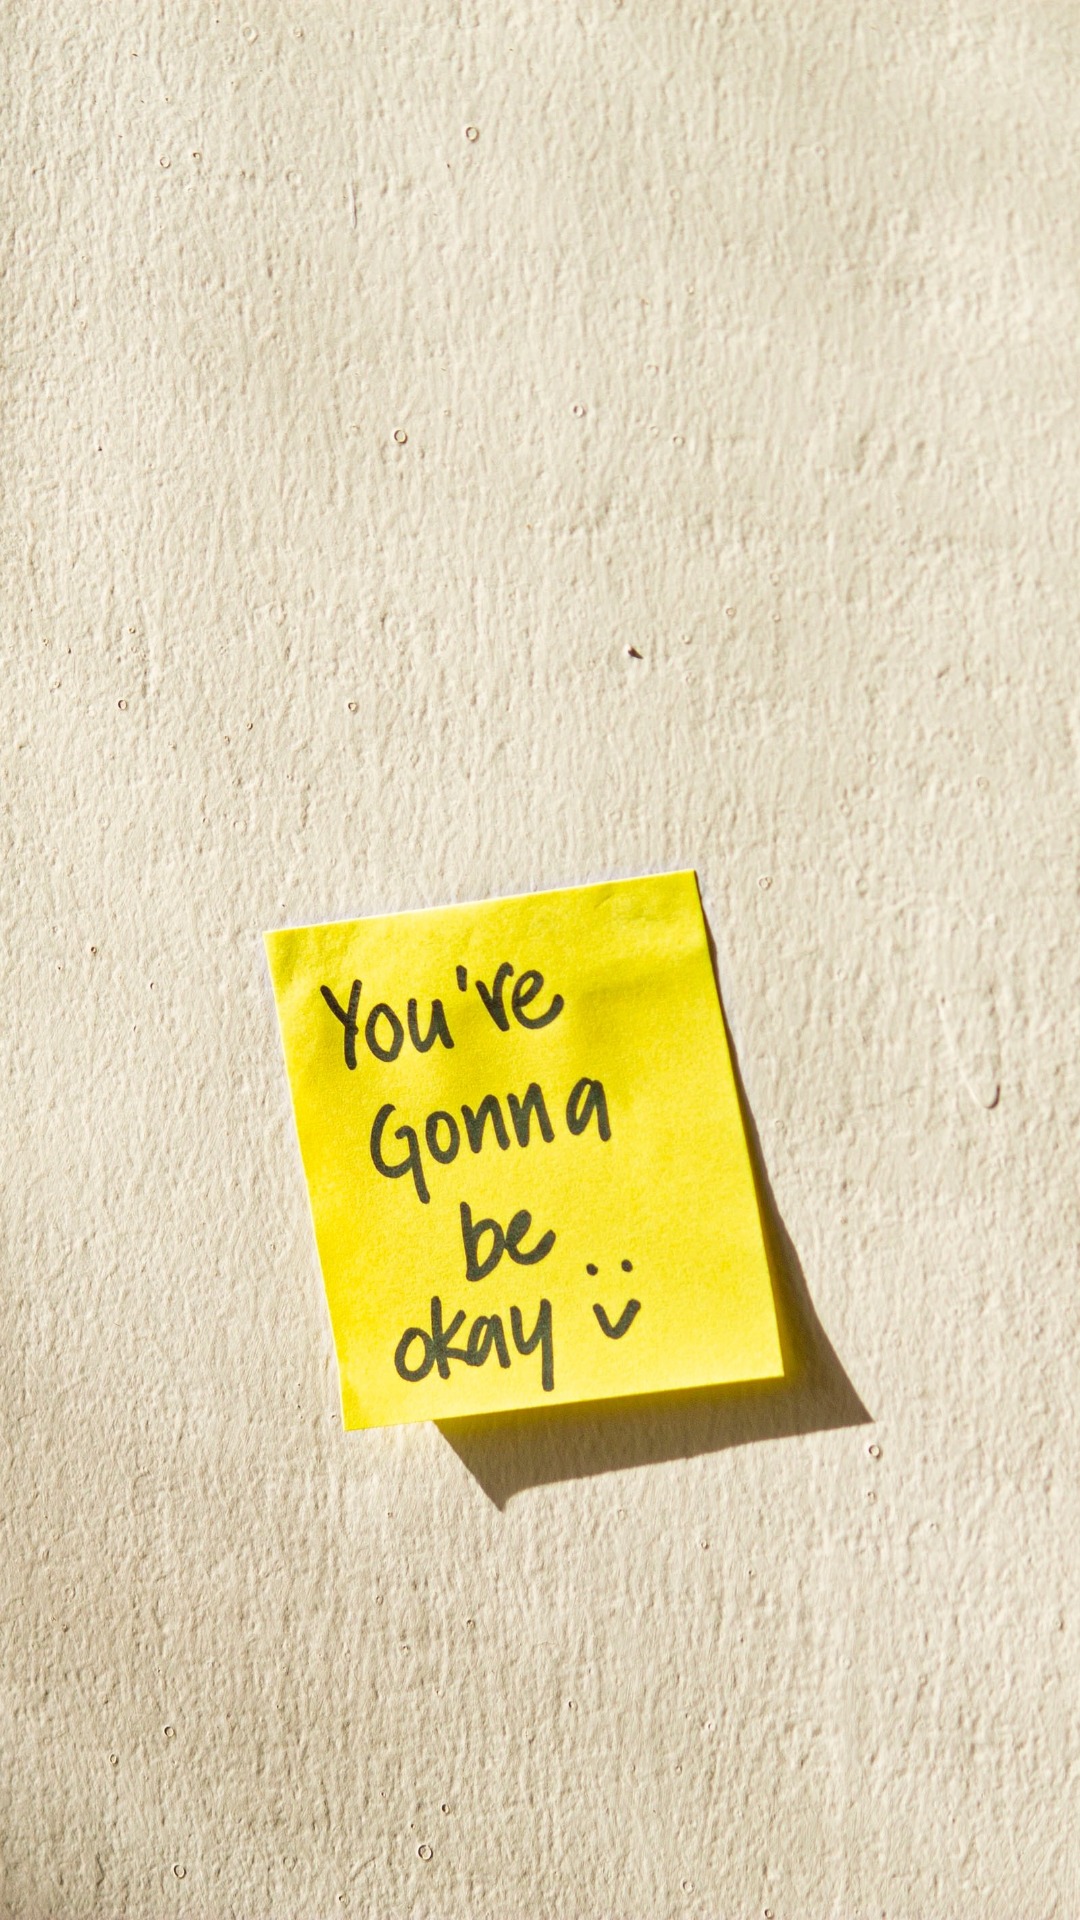 You've
Gonna
be
okay